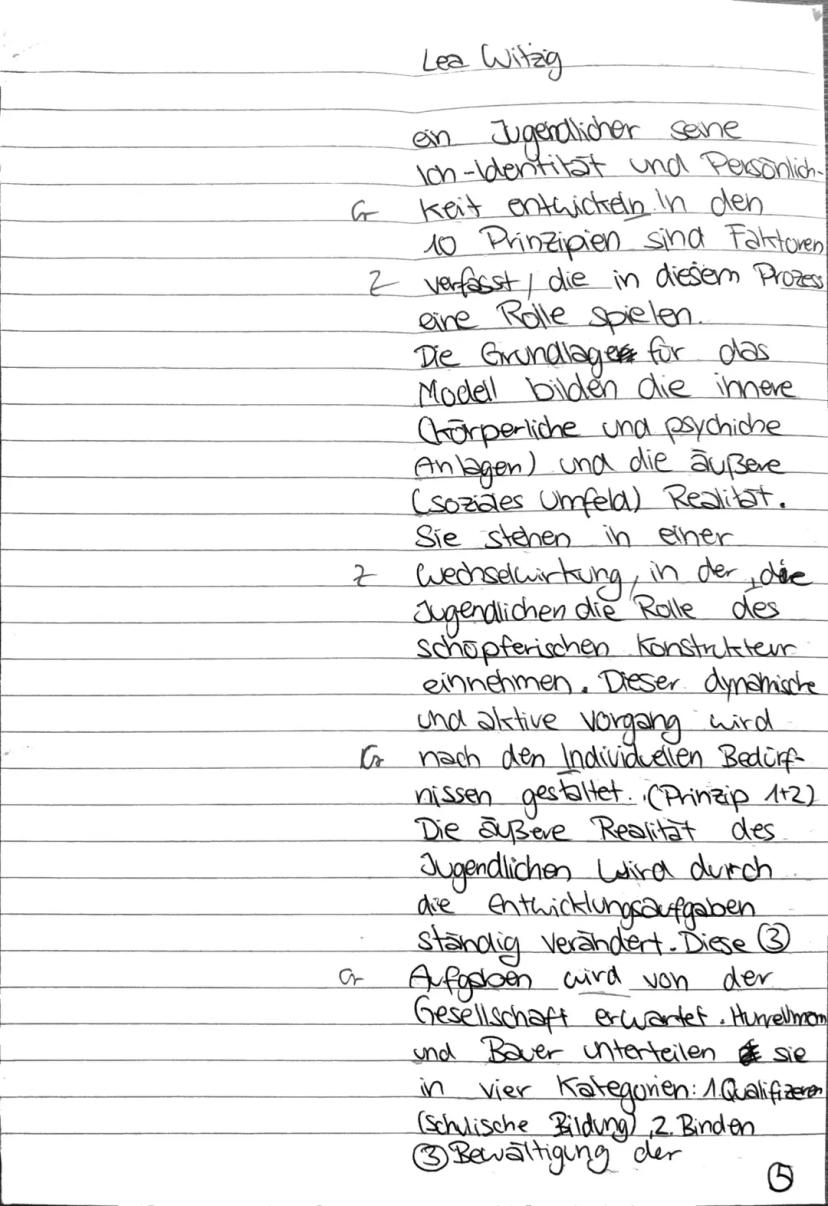 Lea Witzig
ein Jugendlicher seine
Ich-Identität und Persönlich-
G keit entwickeln. In den
10 Prinzipien sind Faktoren
Z verfasst, die in diesem Prozess
eine Rolle spielen.
Die Grundlage für das
Modell bilden die innere
(körperliche und psychiche
Anlagen) und die äußere
(soziales Umfeld) Realität.
Sie stehen in einer
Z Wechselwirkung, in der, die
Jugendlichen die Rolle des
schöpferischen Konstrukteur
einnehmen. Dieser dynamische
und aktive Vorgang wird
Gr nach den Individuellen Bedürf-
nissen gestaltet. (Prinzip 1+2)
Die äußere Realität des
Jugendlichen wird durch
die Entwicklungsaufgaben
ständig verändert. Diese ③
Gr Aufgaben wird von der
Gesellschaft erwartet. Hurrelmann
und Bauer unterteilen sie
in vier Kategorien: 1. Qualifizeren
(schulische Bildung), 2. Binden
③ Bewältigung der
⑤